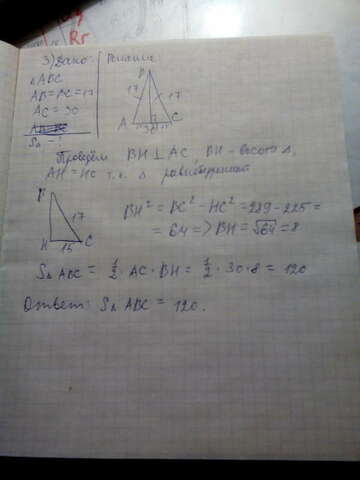 3) Дано: Решение
△ABC
AB=BC=17
AC=30
S△ - ?
B
17 17
A H C
30
Проведём BH ⊥ AC, BH - высота △,
AH = HC т.к. △ равнобедренный
B
17
H 15 C
BH² = BC² - HC² = 289 - 225 =
= 64 => BH = √64 = 8
S△ABC = 1/2 · AC · BH = 1/2 · 30 · 8 = 120
Ответ: S△ ABC = 120.